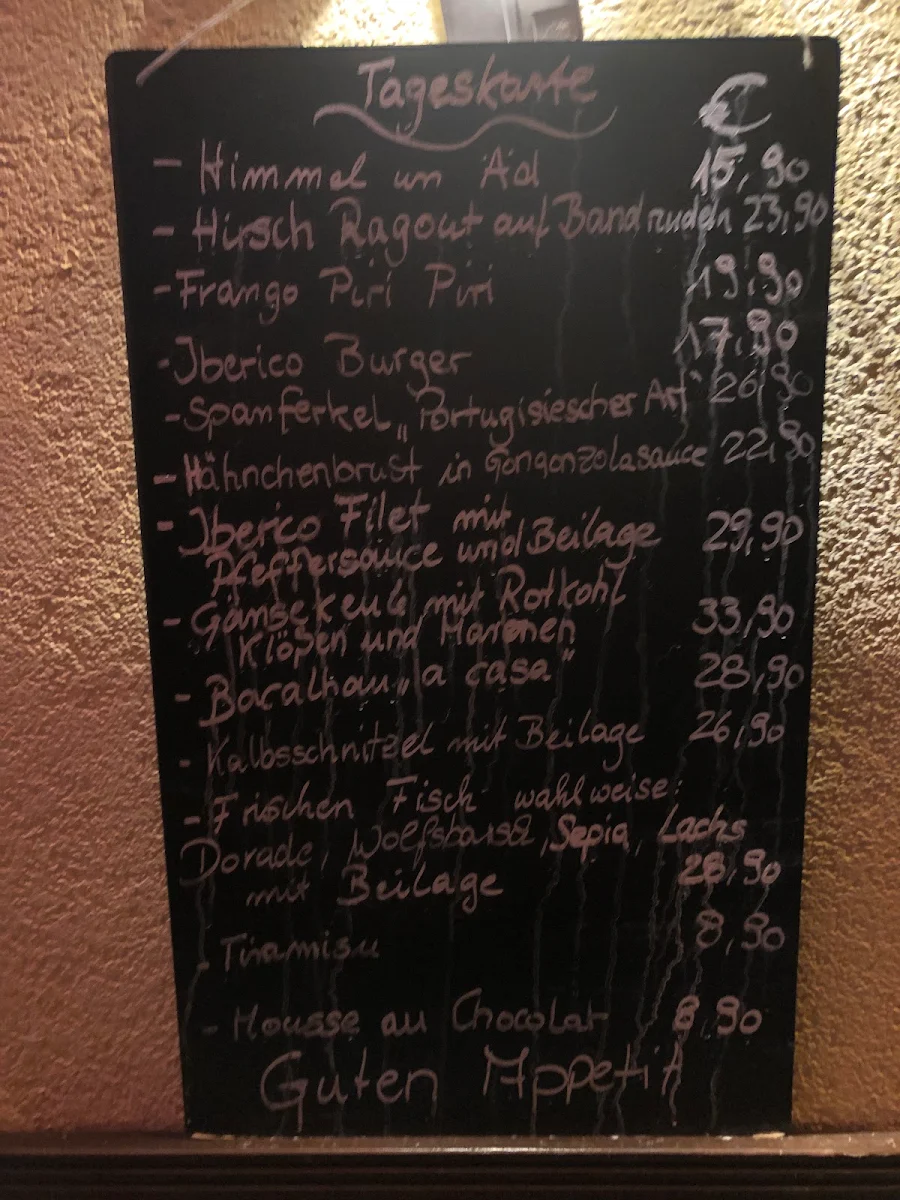 Tageskarte €
- Himmel un Äd 15,90
- Hirsch Ragout auf Bandnudeln 23,90
- Frango Piri Piri 19,90
- Iberico Burger 17,90
- Spanferkel „Portugisiescher Art“ 26,90
- Hähnchenbrust in Gorgonzolasauce 22,90
- Iberico Filet mit
Pfeffersauce und Beilage 29,90
- Gänsekeule mit Rotkohl
Klößen und Maronen 33,90
- Bacalhau „a casa“ 28,90
- Kalbsschnitzel mit Beilage 26,90
- Frischen Fisch wahlweise:
Dorade, Wolfsbarsch, Sepia, Lachs
mit Beilage 28,90
- Tiramisu 8,90
- Mousse au Chocolat 8,90
Guten Appetit